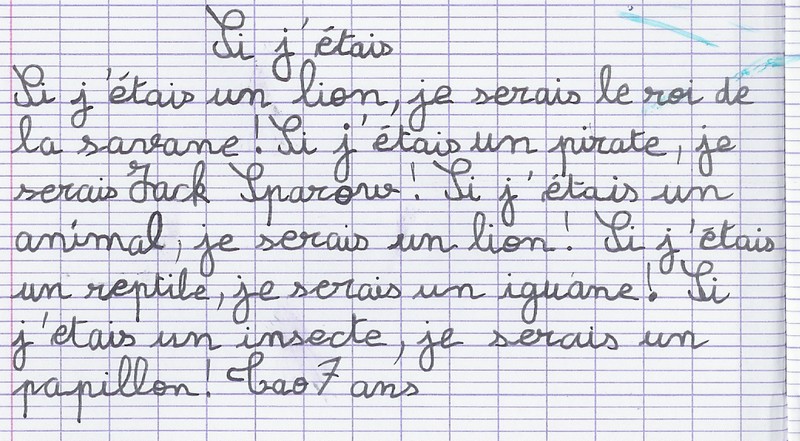 Si j'étais
Si j'étais un lion, je serais le roi de
la savane! Si j'étais un pirate, je
serais Jack Sparow! Si j'étais un
animal, je serais un lion! Si j'étais
un reptile, je serais un iguane! Si
j'étais un insecte, je serais un
papillon! Cao 7 ans